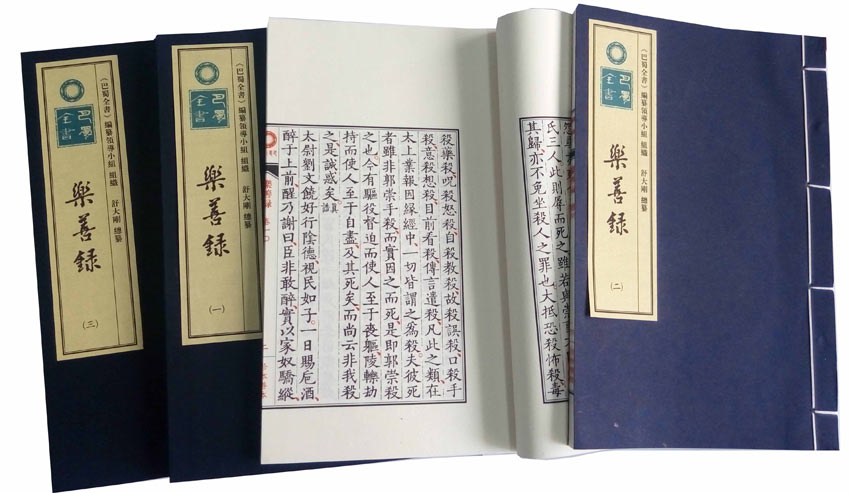 《巴蜀全書》編纂領導小組 組織　舒大剛 總纂
巴蜀全書
樂善錄
（三）
《巴蜀全書》編纂領導小組 組織　舒大剛 總纂
巴蜀全書
樂善錄
（一）
氏三人此則辱而死之雖若與崇
其歸亦不免坐殺人之罪也大抵恐殺怖殺毒
殺樂殺呪殺怒殺自殺教殺故殺誤殺口殺手
殺意殺想殺目前看殺傳言遣殺凡此之類在
太上業報因緣經中一切皆謂之為殺夫彼死
者雖非郭崇手殺而實因之而死是即郭崇殺
之也今有驅役督迫而使人至于喪軀陵轢劫
持而使人至于自盡及其死矣而尚云非我殺
之是誠惑矣 真誥
太尉劉文饒好行陰德視民如子一日賜卮酒
醉于上前醒乃謝曰臣非敢醉實以家奴驕縱
《巴蜀全書》編纂領導小組 組織　舒大剛 總纂
巴蜀全書
樂善錄
（二）